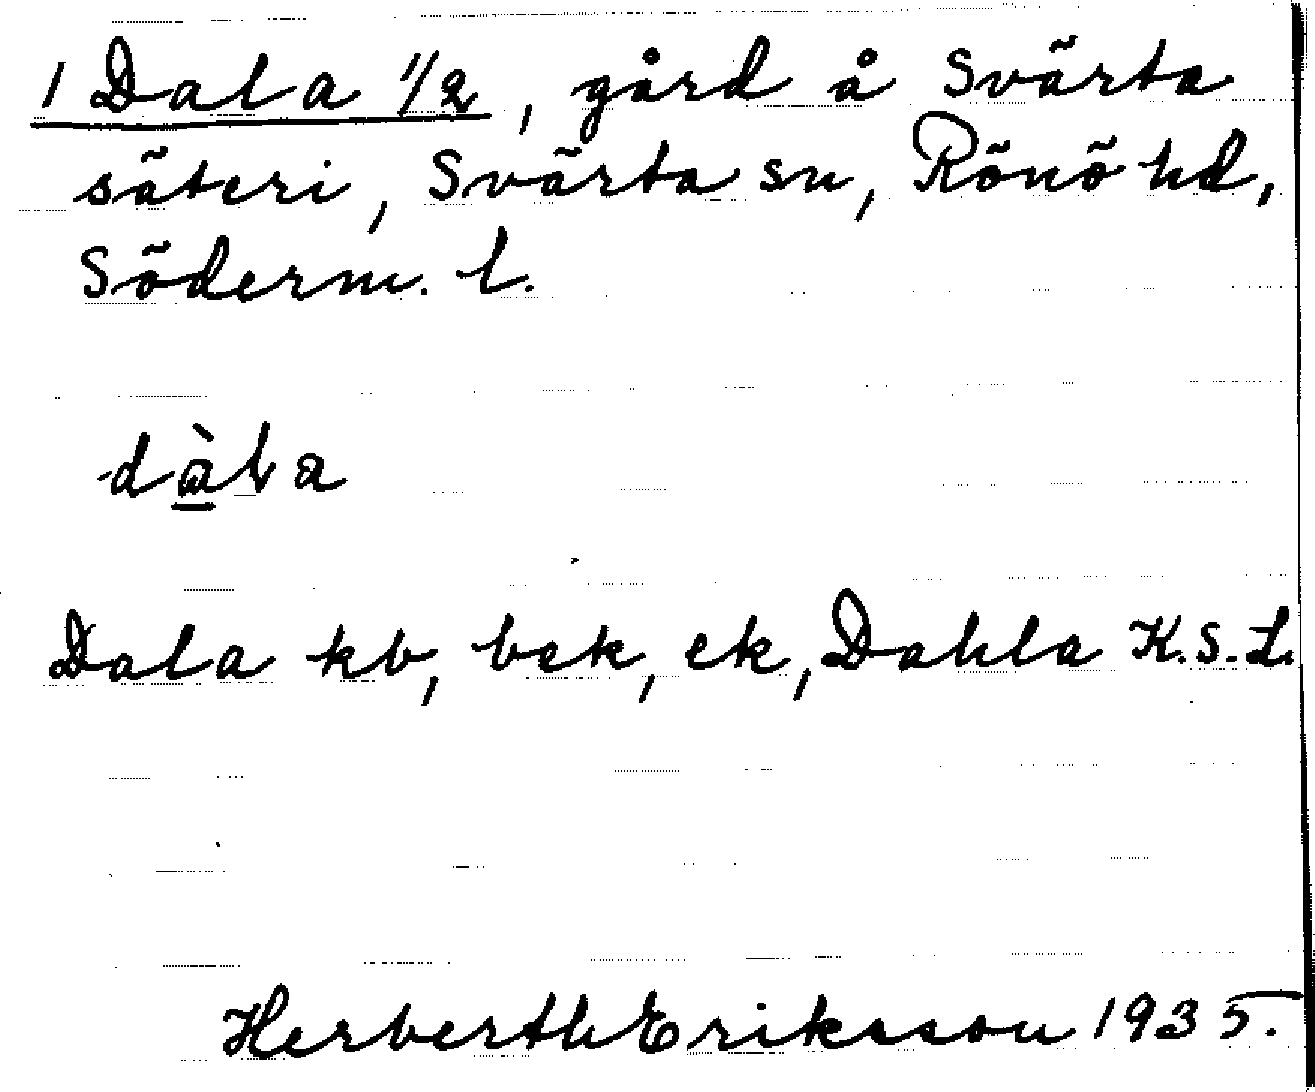 1 Dala 1/2, gård å Svärta
säteri, Svärta sn, Rönö hd,
Söderm. l.
dàla
Dala kb, bek, ek, Dahla K.S.L.
Herberth Eriksson 1935.